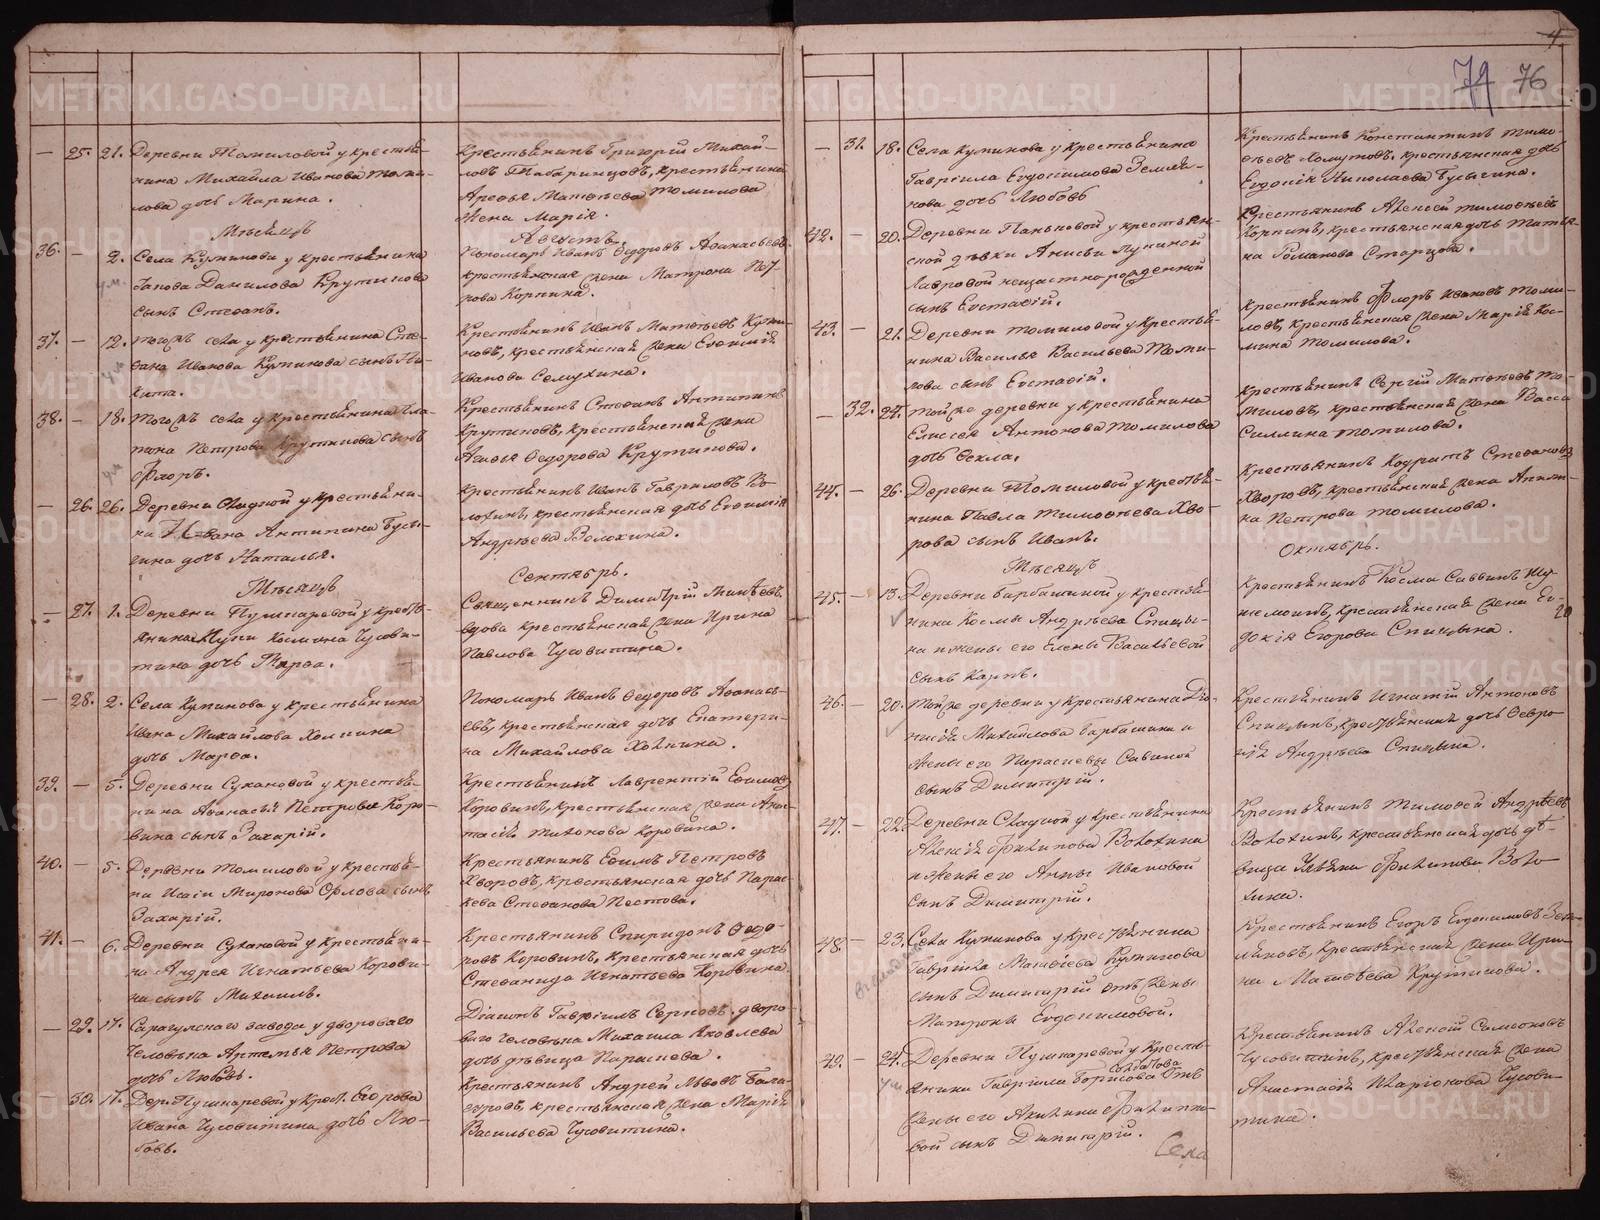 4.
79 76
— 25. 21. Деревни Томиловой у крестья-
нина Михайла Иванова Томи-
лова дочь Марина.
Крестьянинъ Григорій Михай-
ловъ Табаринцовъ, крестьянина
Матѳѣева Томилова
жена Марія.
Мѣсяцъ Августъ.
36. — 2. Села Купинова у крестьянина
Данилова Крутинова
сынъ Стефанъ.
Пономарь Иванъ Ѳедоровъ Аѳанасьевъ
крестьянская жена Матрона
Корпина.
37. — 12. Тогожъ села у крестьянина Сте-
фана Иванова Купинова сынъ Ни-
кита.
Крестьянинъ Иванъ Матѳѣевъ Купи-
новъ, крестьянская жена Евфимія
Иванова Семухина.
38. — 18. Тогожъ села у крестьянина Пла-
тона Петрова Крутикова сынъ
Флоръ.
Крестьянинъ Стефанъ Антипинъ
Крутиковъ, крестьянская жена
Агафья Ѳедорова Крутикова.
— 26. 26. Деревни Сладкой у крестьяни-
на Ивана Антипина Бусы-
гина дочь Наталья.
Крестьянинъ Иванъ Гавриловъ Во-
лохинъ, крестьянская дочь Евфимія
Андрѣева Волохина.
Мѣсяцъ Сентябрь.
— 27. 1. Деревни Пушкаревой у кресть-
янина Космина Чусови-
тина дочь Марѳа.
Священникъ Димитрій Минѣевъ,
вдова крестьянская жена Ирина
Павлова Чусовитина.
— 28. 2. Села Купинова у крестьянина
Ивана Михайлова Холкина
дочь Марѳа.
Пономарь Иванъ Ѳедоровъ Аѳанась-
евъ, крестьянская дочь Екатери-
на Михайлова Холкина.
39. — 5. Деревни Сухановой у крестья-
нина Аѳанасія Петрова Коро-
вина сынъ Захарій.
Крестьянинъ Лаврентій Ефимовъ
Коровинъ, крестьянская жена Анас-
тасія Тихонова Коровина.
40. — 5. Деревни Томиловой у крестья-
на Исаіи Миронова Орлова сынъ
Захарій.
Крестьянинъ Ефимъ Петровъ
Хворовъ, крестьянская дочь Парас-
кева Стефанова Пестова.
41. — 6. Деревни Сухановой у крестьяни-
на Андрея Игнатьева Корови-
на сынъ Михаилъ.
Крестьянинъ Спиридонъ Ѳедо-
ровъ Коровинъ, крестьянская дочь
Стефанида Игнатьева Коровина.
— 29. 17. Сарагулскаго завода у дворового
человѣка Артемья Петрова
дочь Любовь.
Діаконъ Гавріилъ Серповъ, дворо-
ваго человѣка Михаила Яковлева
дочь дѣвица Параскева.
— 30. 17. Дер. Пушкаревой у крест. Егорова
Ивана Чусовитина дочь Лю-
бовь.
Крестьянинъ Андрей Львовъ Бала-
, крестьянская жена Марія
Васильева Чусовитина.
— 31. 18. Села Купинова у крестьянина
Гавріила Евдокимова Земля-
нова дочь Любовь
Крестьянинъ Константинъ Тимо-
ѳеевъ Ломутовъ, крестьянская дочь
Евдокія Николаева Бусыгина.
42. — 20. Деревни Паньковой у крестьян-
ской дѣвки Анисьи Лукиной
Лавровой незаконнорожденной
сынъ Евстафій.
Крестьянинъ Алексей Тимофѣевъ
Корпинъ, крестьянская дочь Татья-
на Романова Старцова.
43. — 21. Деревни Томиловой у крестья-
нина Василья Васильева Томи-
лова сынъ Евстафій.
Крестьянинъ Флоръ Ивановъ Томи-
ловъ, крестьянская жена Марія Кос-
мина Томилова.
— 32. 24. Тойже деревни у крестьянина
Елисея Антонова Томилова
дочь Ѳекла.
Крестьянинъ Сергій Матѳѣевъ То-
миловъ, крестьянская жена Васса
Силлина Томилова.
44. — 26. Деревни Томиловой у крестья-
нина Павла Тимоѳѣева Хво-
рова сынъ Иванъ.
Крестьянинъ Кодратъ Стефановъ
Хворовъ, крестьянская жена Агапи-
на Петрова Томилова.
Мѣсяцъ Октябрь.
45. — 13. Деревни Барбашиной у крестья-
нина Космы Андрѣева Спицы-
на и жены его Елены Васильевой
сынъ Карпъ.
Крестьянинъ Косма Саввинъ Шу-
, крестьянская жена Ев-
докія Егорова Спицына.
20
46. — 20. Тойже деревни у крестьянина Діо-
нисія Михайлова Барбашина и
жены его Параскевы Савиной
сынъ Димитрій.
Крестьянинъ Игнатій Антоновъ
Спицынъ, крестьянская дочь Февро-
нія Андрѣева Спицына.
47. — 22. Деревни Сладкой у крестьянина
Алексія Филипова Волохина
и жены его Анны Ивановой
сынъ Димитрій.
Крестьянинъ Тимофей Андрѣевъ
Волохинъ, крестьянская дочь дѣ-
вица Ульяна Филипова Воло-
хина.
48. — 23. Села Купинова у крестьянина
Гавріила Матвіева Купинова
сынъ Димитрій отъ жены
Матроны Евдокимовой.
Крестьянинъ Егоръ Евдокимовъ Зем-
ляновъ, крестьянская жена Ири-
на Матвѣева Крутикова.
49. — 24. Деревни Пушкаревой у кресть-
янина Гавріила Борисова Солдатова отъ
жены его Акилины Филиппо-
вой сынъ Димитрій.
Крестьянинъ Алексій Симеоновъ
Чусовитинъ, крестьянская жена
Анастасія Иларіонова Чусови-
тина.
Села
METRIKI.GASO-URAL.RU